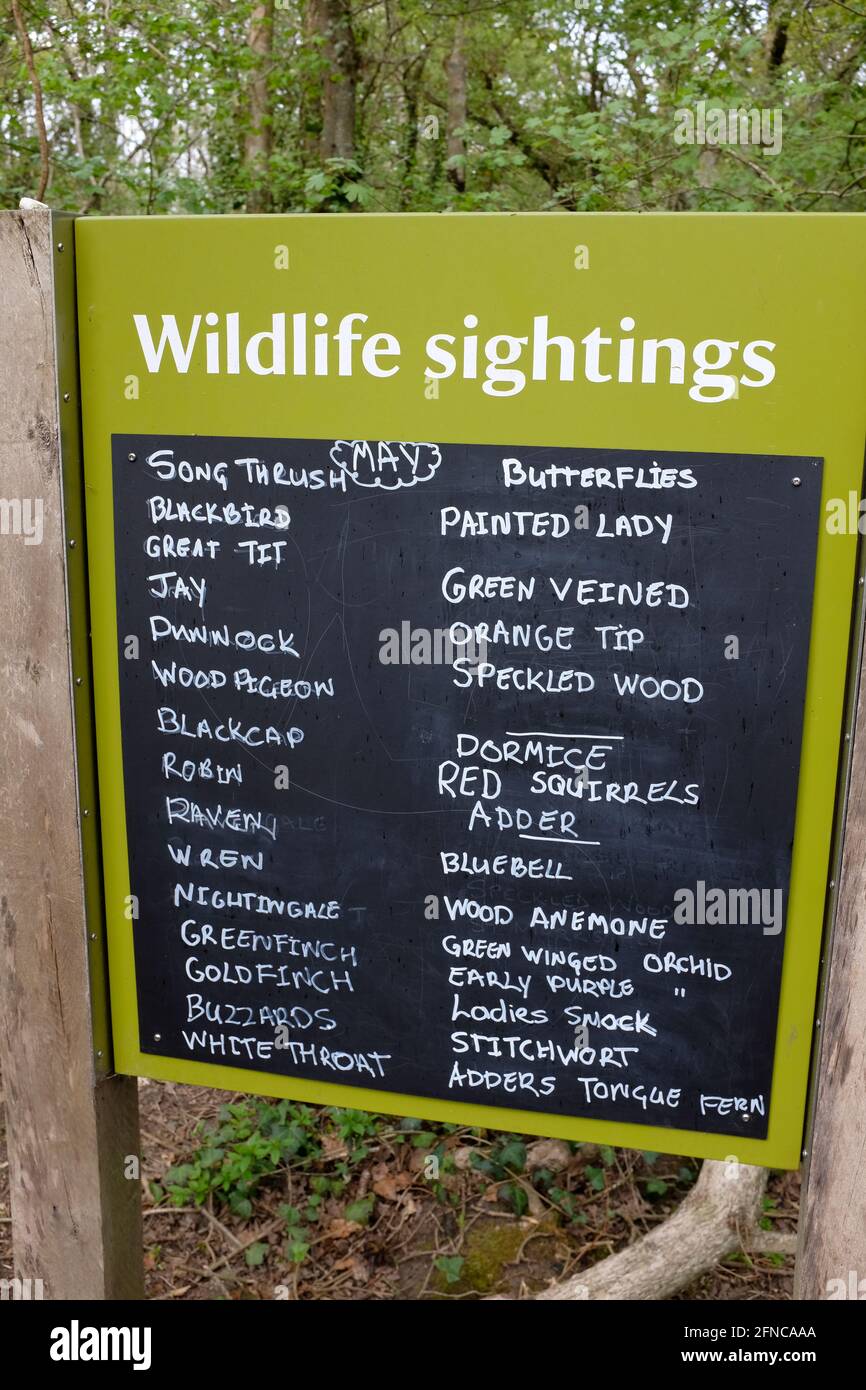 Wildlife sightings
MAY
SONG THRUSH
BLACKBIRD
GREAT TIT
JAY
DUNNOCK
WOOD PIGEON
BLACKCAP
ROBIN
RAVEN
WREN
NIGHTINGALE
GREENFINCH
GOLDFINCH
BUZZARDS
WHITE THROAT
BUTTERFLIES
PAINTED LADY
GREEN VEINED
ORANGE TIP
SPECKLED WOOD
DORMICE
RED SQUIRRELS
ADDER
BLUEBELL
WOOD ANEMONE
GREEN WINGED ORCHID
EARLY PURPLE "
Ladies Smock
STITCHWORT
ADDERS TONGUE FERN
alamy
Image ID: 2FNCAAA
www.alamy.com